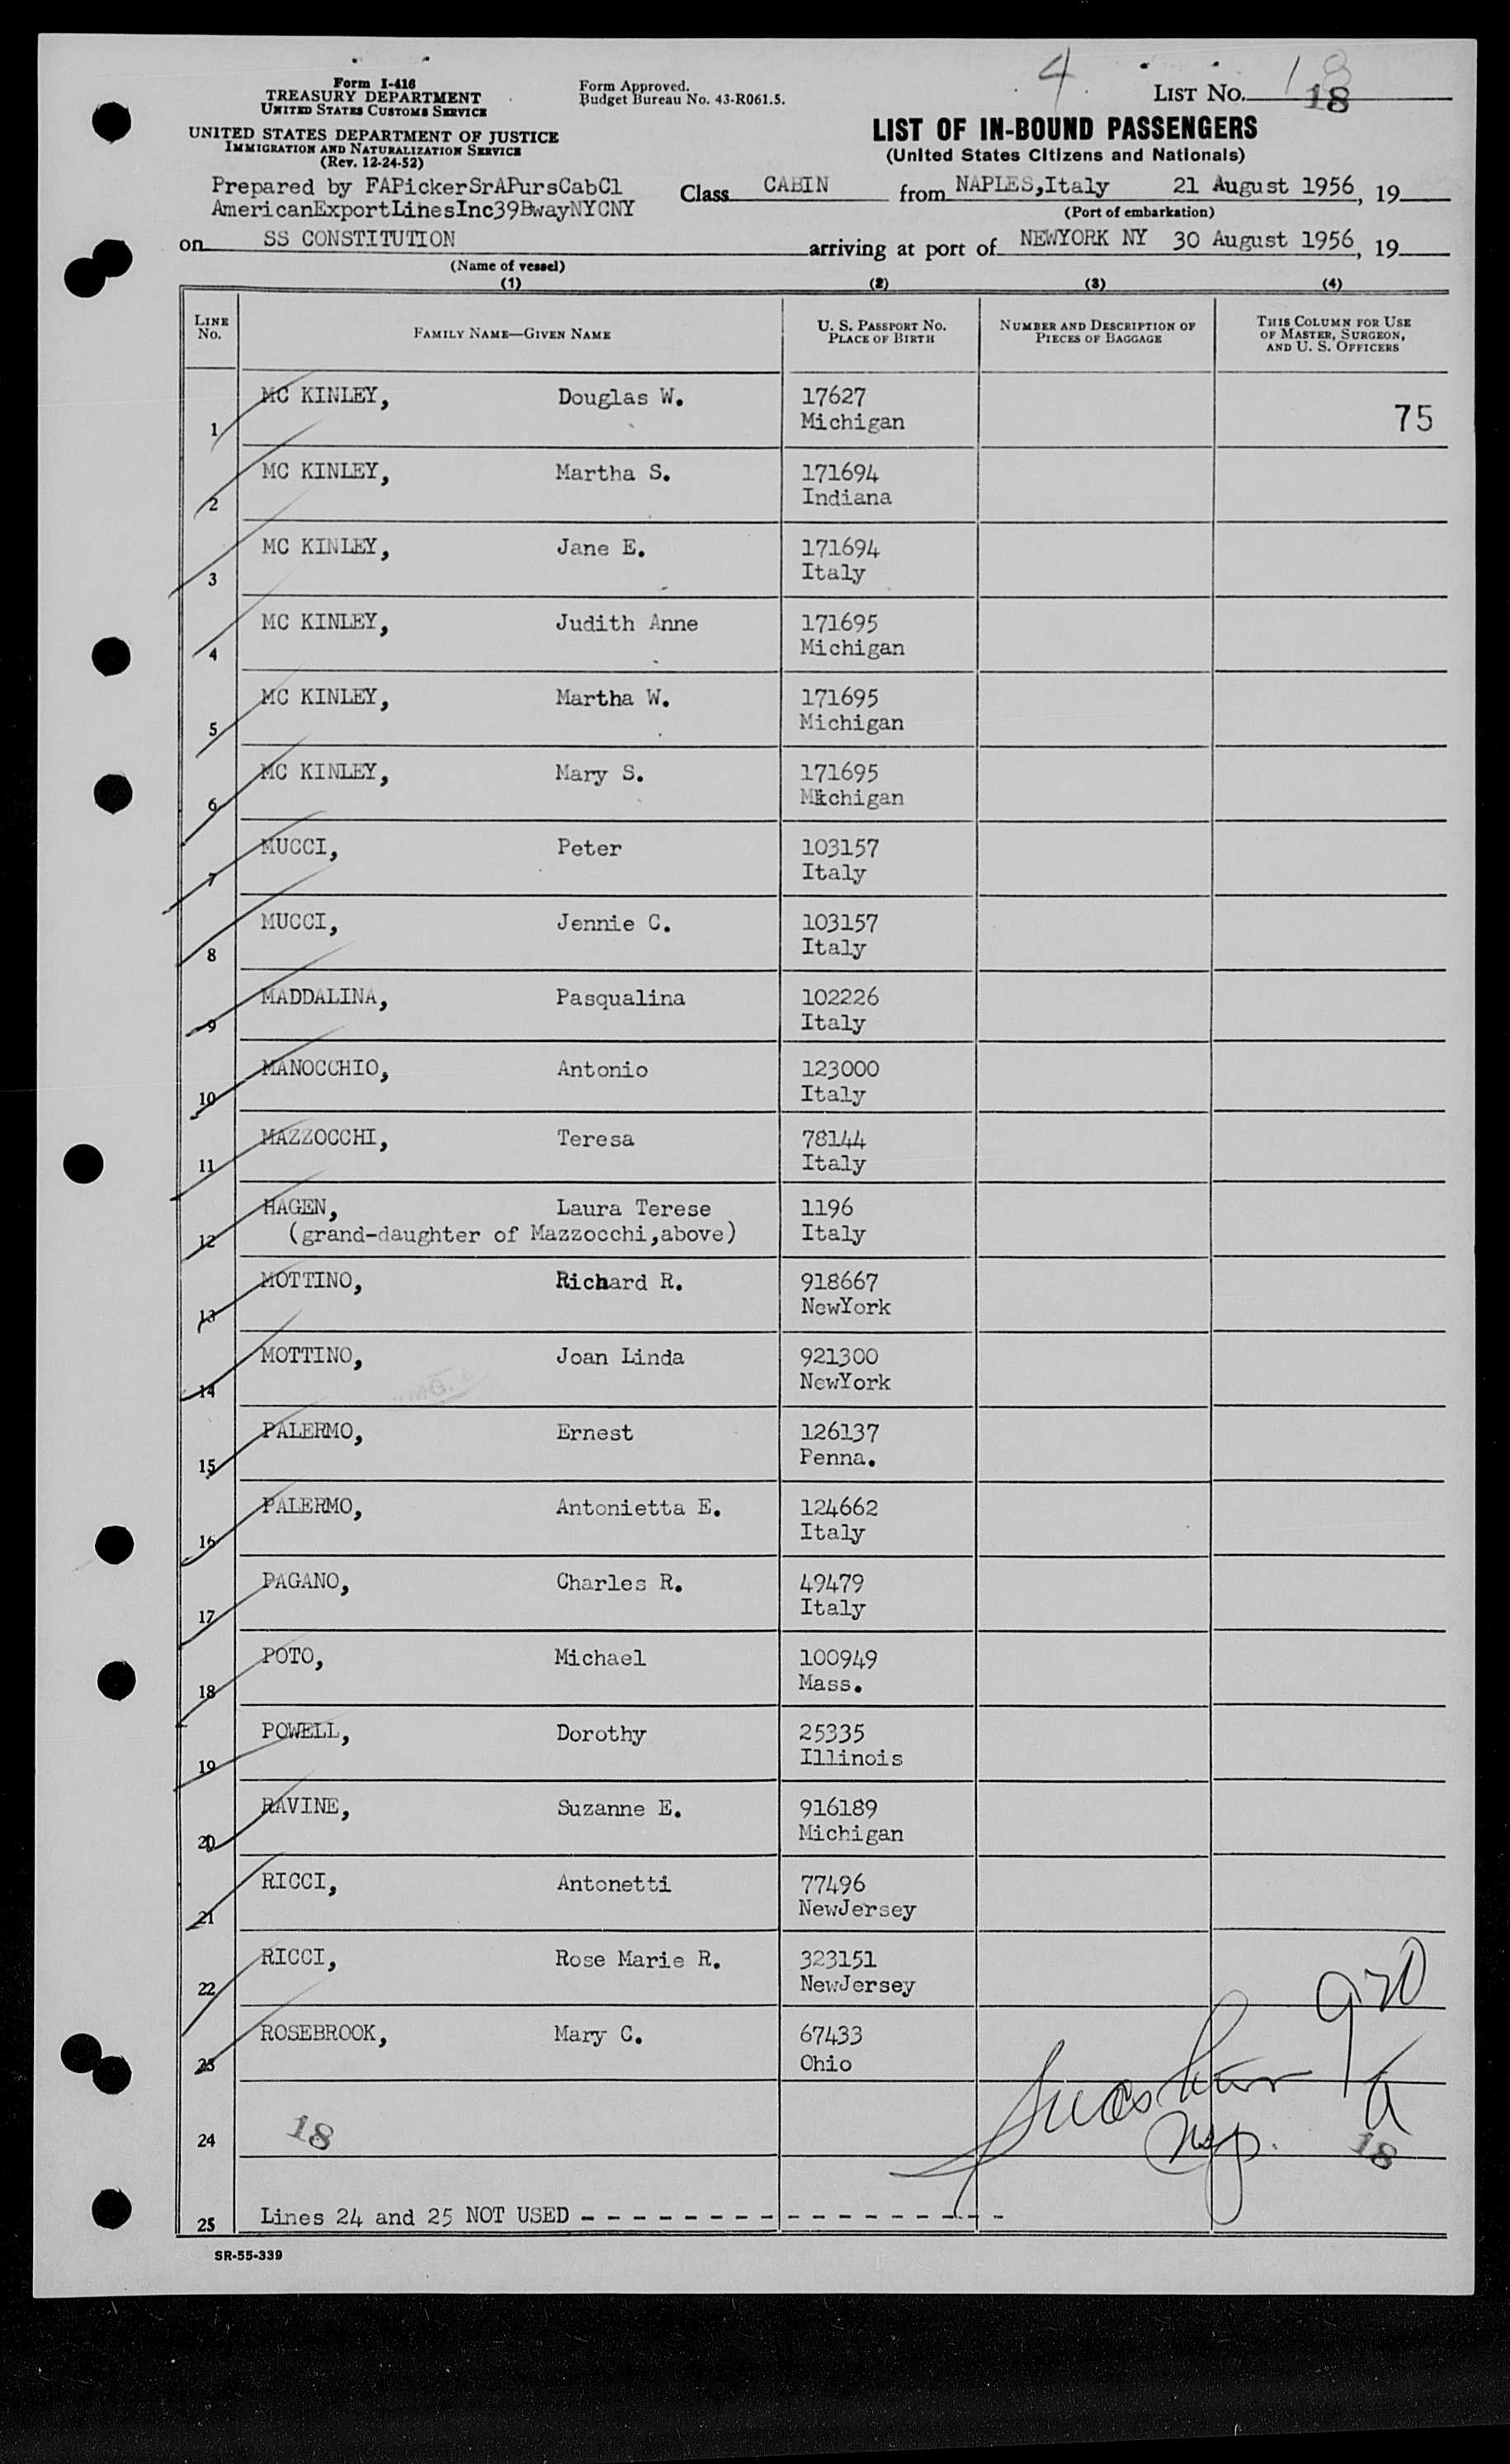 4
18
Form I-416
TREASURY DEPARTMENT
UNITED STATES CUSTOMS SERVICE
UNITED STATES DEPARTMENT OF JUSTICE
IMMIGRATION AND NATURALIZATION SERVICE
(Rev. 12-24-52)
Form Approved.
Budget Bureau No. 43-R061.5.
LIST NO. 18
LIST OF IN-BOUND PASSENGERS
(United States Citizens and Nationals)
Prepared by FAPickerSrAPursCabCl
AmericanExportLinesInc39BwayNYCNY
Class CABIN from NAPLES,Italy 21 August 1956, 19
(Port of embarkation)
on SS CONSTITUTION arriving at port of NEWYORK NY 30 August 1956, 19
(Name of vessel)
(1) (2) (3) (4)
LINE NO. FAMILY NAME—GIVEN NAME U. S. PASSPORT NO. PLACE OF BIRTH NUMBER AND DESCRIPTION OF PIECES OF BAGGAGE THIS COLUMN FOR USE OF MASTER, SURGEON, AND U. S. OFFICERS
1 MC KINLEY, Douglas W. 17627 75
Michigan
2 MC KINLEY, Martha S. 171694
Indiana
3 MC KINLEY, Jane E. 171694
Italy
4 MC KINLEY, Judith Anne 171695
Michigan
5 MC KINLEY, Martha W. 171695
Michigan
6 MC KINLEY, Mary S. 171695
Michigan
7 MUCCI, Peter 103157
Italy
8 MUCCI, Jennie C. 103157
Italy
9 MADDALINA, Pasqualina 102226
Italy
10 MANOCCHIO, Antonio 123000
Italy
11 MAZZOCCHI, Teresa 78144
Italy
12 HAGEN, Laura Terese 1196
(grand-daughter of Mazzocchi,above) Italy
13 MOTTINO, Richard R. 918667
NewYork
14 MOTTINO, Joan Linda 921300
NewYork
15 PALERMO, Ernest 126137
Penna.
16 PALERMO, Antonietta E. 124662
Italy
17 PAGANO, Charles R. 49479
Italy
18 POTO, Michael 100949
Mass.
19 POWELL, Dorothy 25335
Illinois
20 RAVINE, Suzanne E. 916189
Michigan
21 RICCI, Antonetti 77496
NewJersey
22 RICCI, Rose Marie R. 323151
NewJersey
23 ROSEBROOK, Mary C. 67433
Ohio
24 18 18
25 Lines 24 and 25 NOT USED - - - - - - - - - - - - - - - - - -
SR-55-339